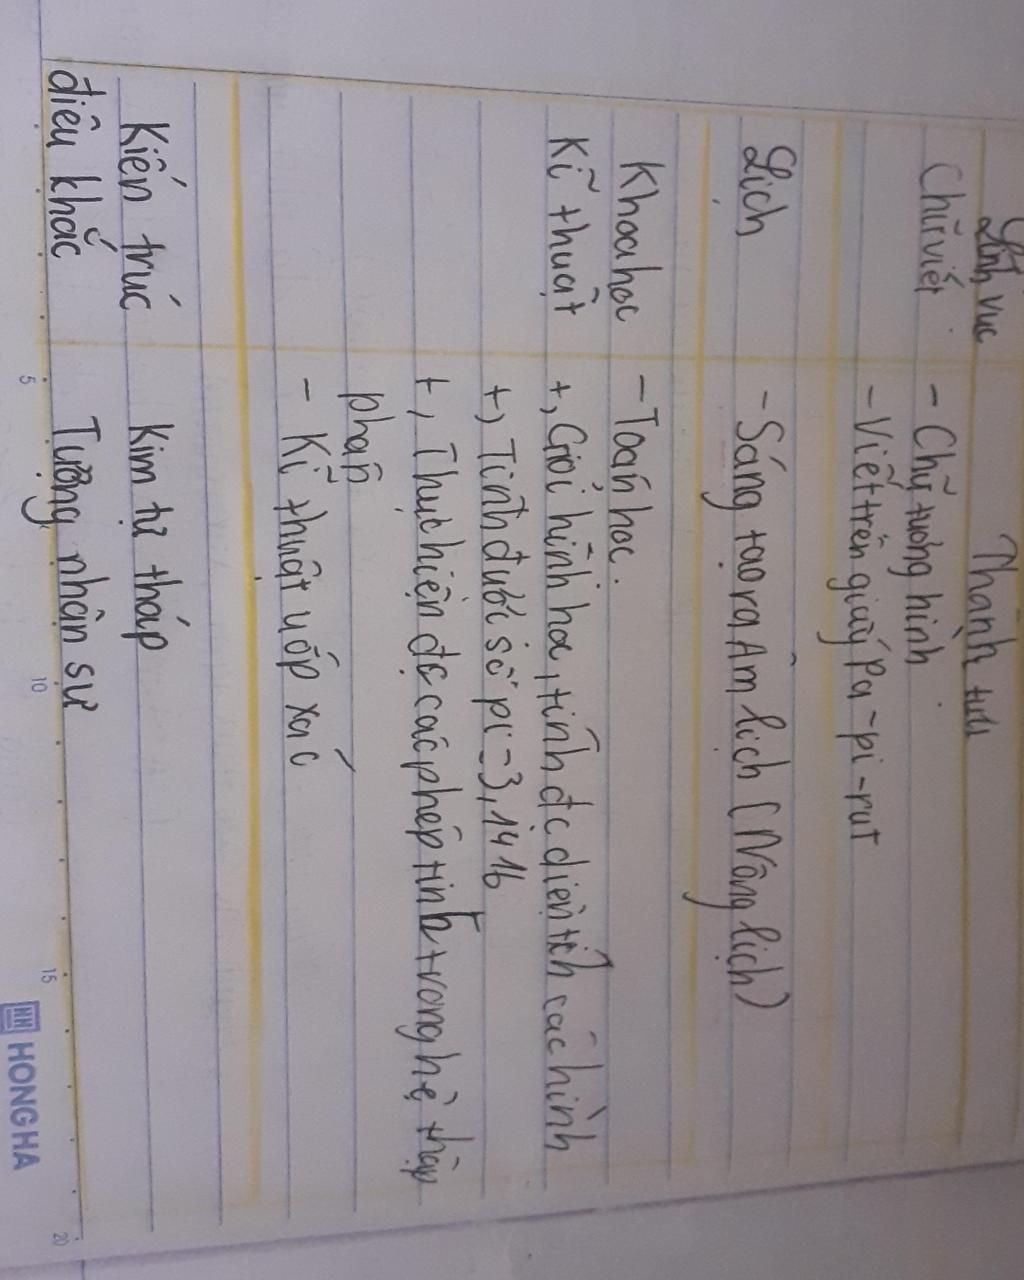 Lĩnh vực Thành tựu
Chữ viết - Chữ tượng hình
- Viết trên giấy Pa-pi-rut
Lịch - Sáng tạo ra Âm lịch (Nông lịch)
Khoa học - Toán học.
Kĩ thuật +, Giỏi hình học, tính đc diện tích các hình
+, Tính được số pi-3,1416
+, Thực hiện đc các phép tính trong hệ thập
phân
- Kĩ thuật ướp xác
Kiến trúc Kim tự tháp
điêu khắc Tượng nhân sư
5 10 15 20
HH HONG HA